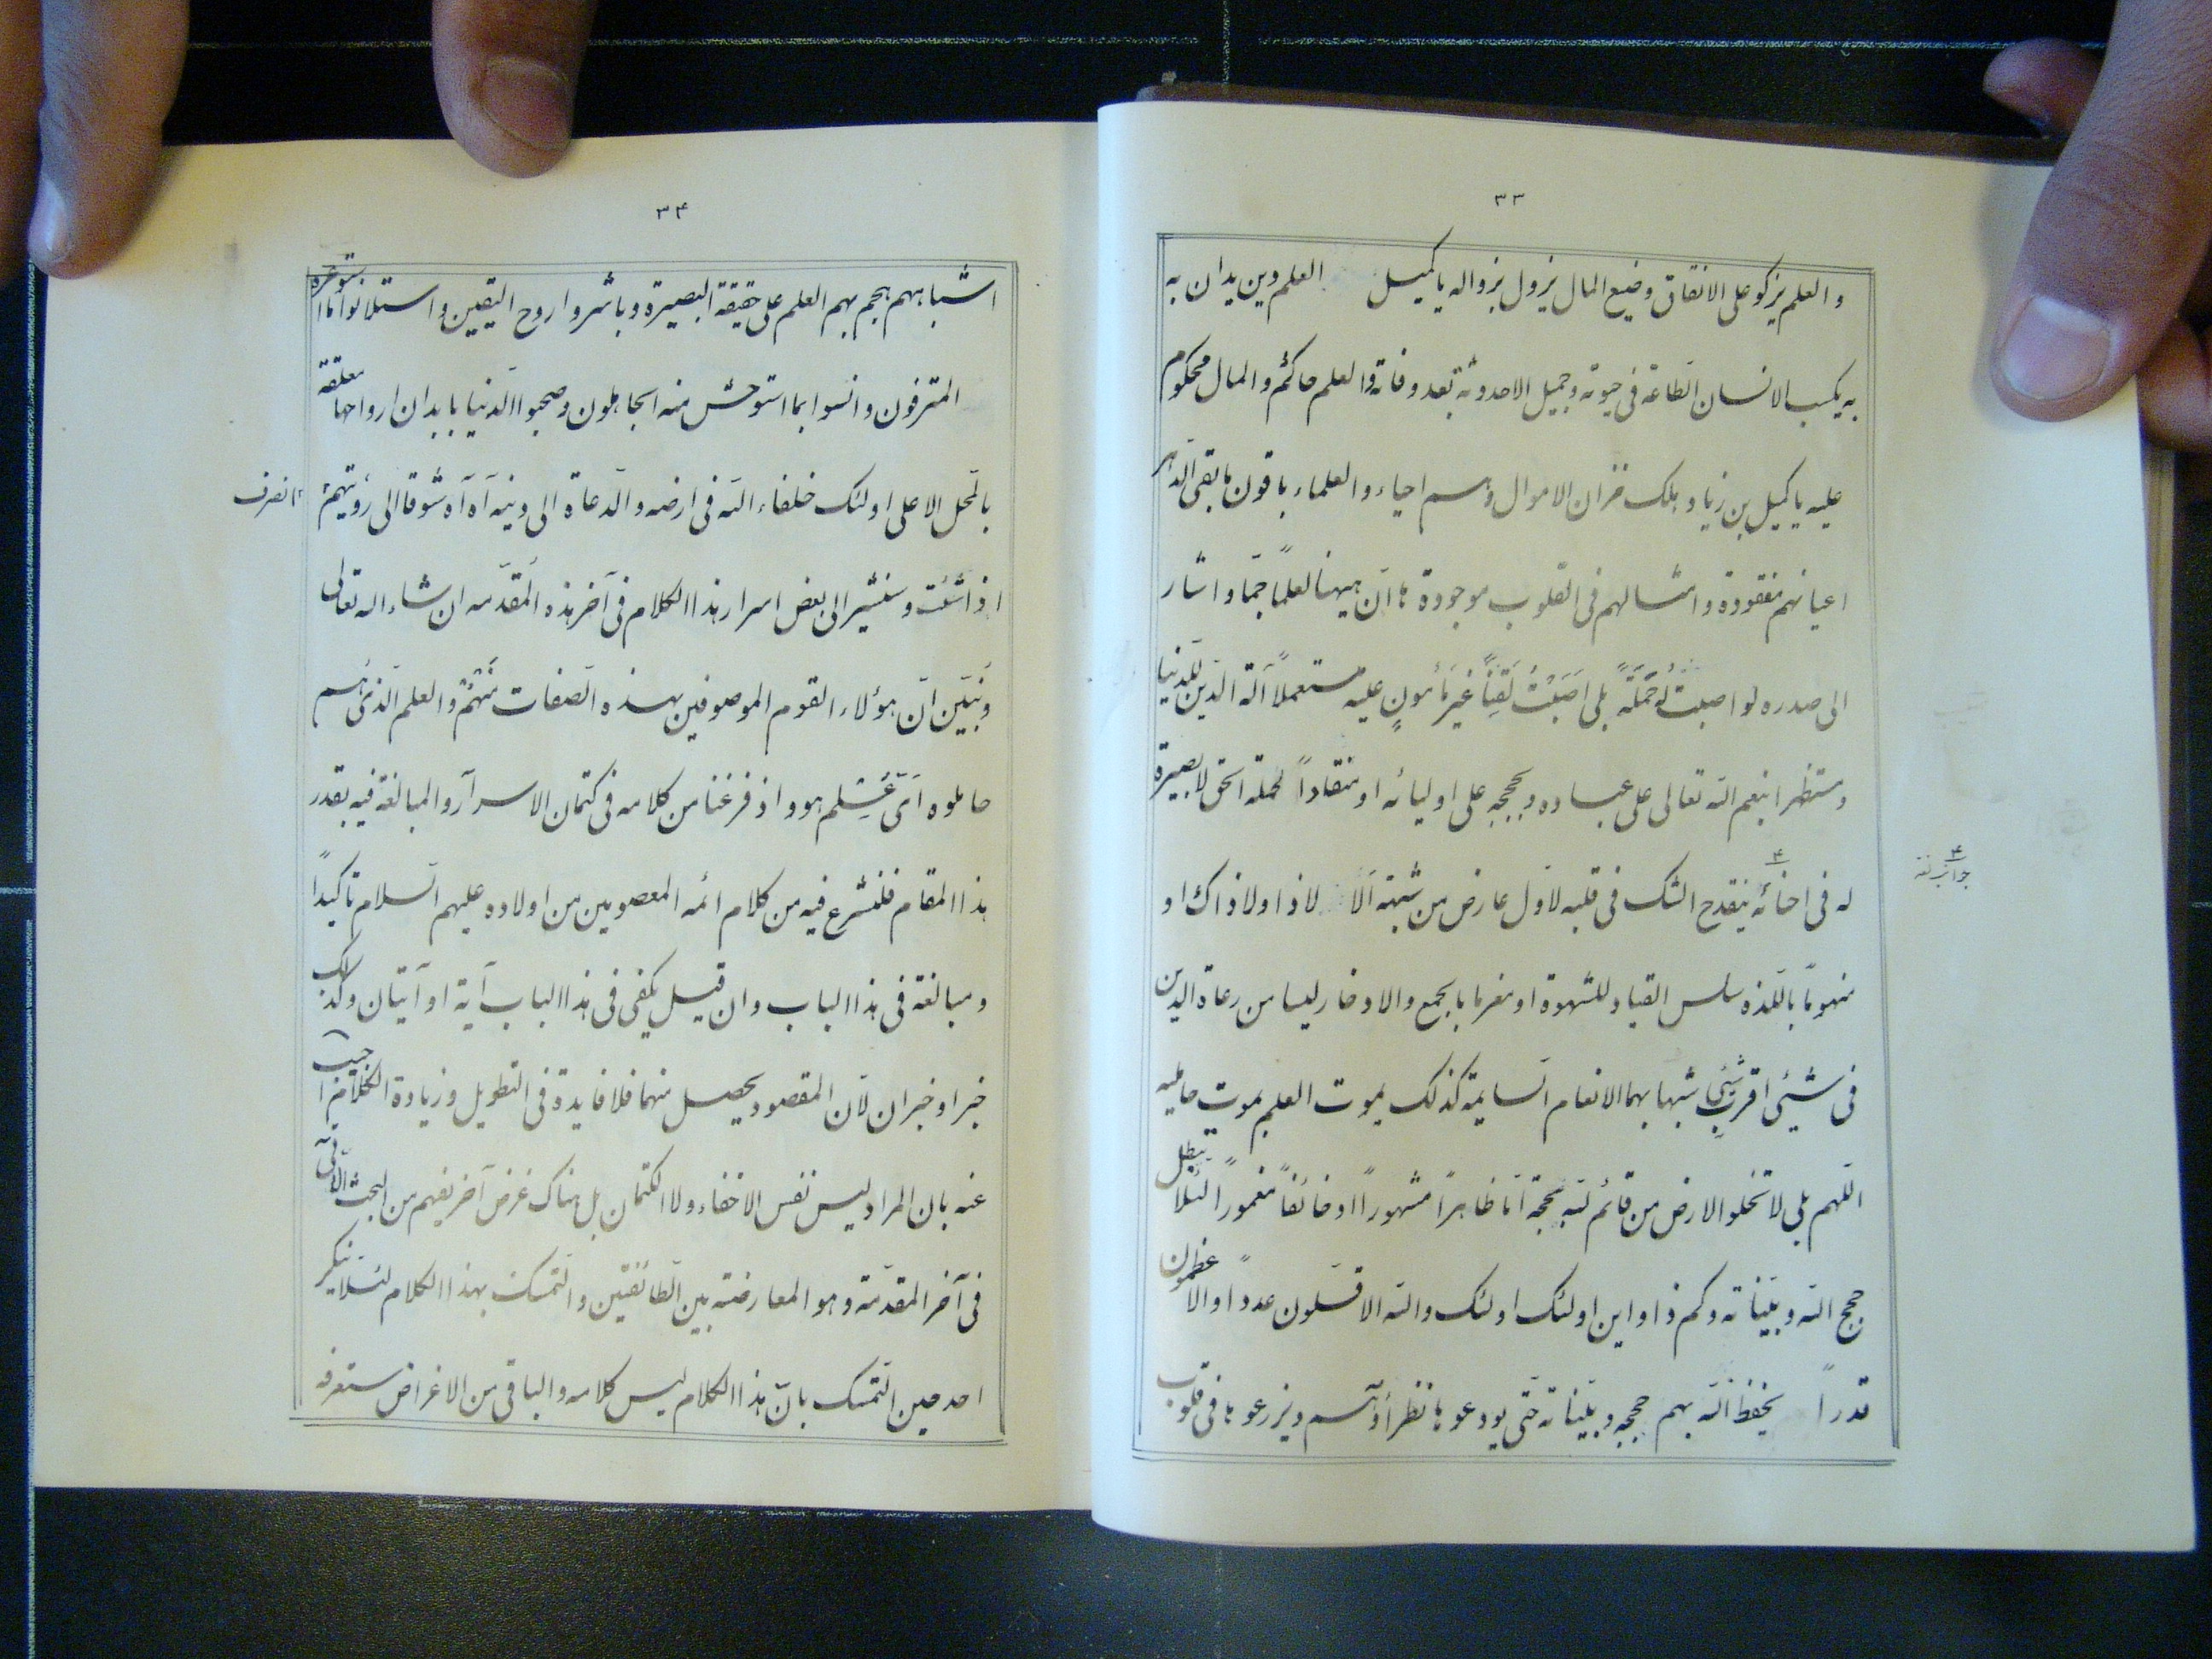 ۳۳
والعلم يزكو على الانفاق وضيع المال يزول بزواله يا كميل العلم دين يدان به
به يكسب الانسان الطاعة فى حيوته وجميل الاحدوثة بعد وفاته والعلم حاكم والمال محكوم
عليه يا كميل بن زياد هلك خزان الاموال وهم احياء والعلماء باقون ما بقى الدهر
اعيانهم مفقودة وامثالهم فى القلوب موجودة ها ان ههنا لعلمًا جمّا واشار
الى صدره لو اصبت لُه حَمَلَةً بلى اَصَبْتُ لَقِنًا غيرَ مأمونٍ عليه مستعملاً آلة الدين للدنيا
ومستظهرا بنعم الله تعالى على عباده وبحججه على اوليائه او منقاداً لحملة الحق لا بصيرة
له فى احنائه ينقدح الشك فى قلبه لاول عارض من شبهة اَلا لا ذا ولا ذاك او
منهومًا باللّذة سلس القياد للشهوة او مغرما بالجمع والادخار ليسا من رعاة الدين
فى شيئى اقرب شيئٍ شبها بهما الانعام السايمة كذلك يموت العلم بموت حامليه
اللهم بلى لا تخلو الارض من قائم لله بحجة امّا ظاهرًا مشهوراً او خائفاً مغموراً لئلا تبطل
حجج الله وبيّناته وكم ذا واين اولئك اولئك والله الاقلّون عدداً والاعظمون
قدراً يحفظ الله بهم حججه وبيّناته حتى يودعوها نظراؤهم ويزرعوها فى قلوب
۳۴
اشباههم هجم بهم العلم على حقيقة البصيرة وباشروا روح اليقين واستلانوا ما استوعره
المترفون وانسوا بما استوحش منه الجاهلون وصحبوا الدنيا بابدان ارواحها معلقة
بالمحل الاعلى اولئك خلفاء الله فى ارضه والدعاة الى دينه آه آه شوقا الى رؤيتهم
انصرف
اذا شئت وسنشير الى بعض اسرار هذا الكلام فى آخر هذه المقدّمه ان شاء الله تعالى
ونبيّن انّ هؤلاء القوم الموصوفين بهذه الصفات مَنْهُمْ والعلم الّذى هم
حاملوه اىّ عِلم هو واذ فرغنا من كلامه فى كتمان الاسرار والمبالغة فيه بقدر
هذا المقام فلنشرع فيه من كلام ائمه المعصومين من اولاده عليهم السلام تاكيداً
ومبالغة فى هذا الباب وان قيل يكفى فى هذا الباب آية او آيتان وكذلك
خبر او خبران لانّ المقصود يحصل منهما فلا فايدة فى التطويل وزيادة الكلام اجيب
عنه بان المراد ليس نفس الاخفاء ولا الكتمان بل هناك غرض آخر يفهم من البحث الآتى
فى آخر المقدّمة وهو المعارضة بين الطائفتين والتمسك بهذا الكلام لئلا ينكر
احد حين التمسك بانّ هذا الكلام ليس كلامه والباقى من الاغراض ستعرفه